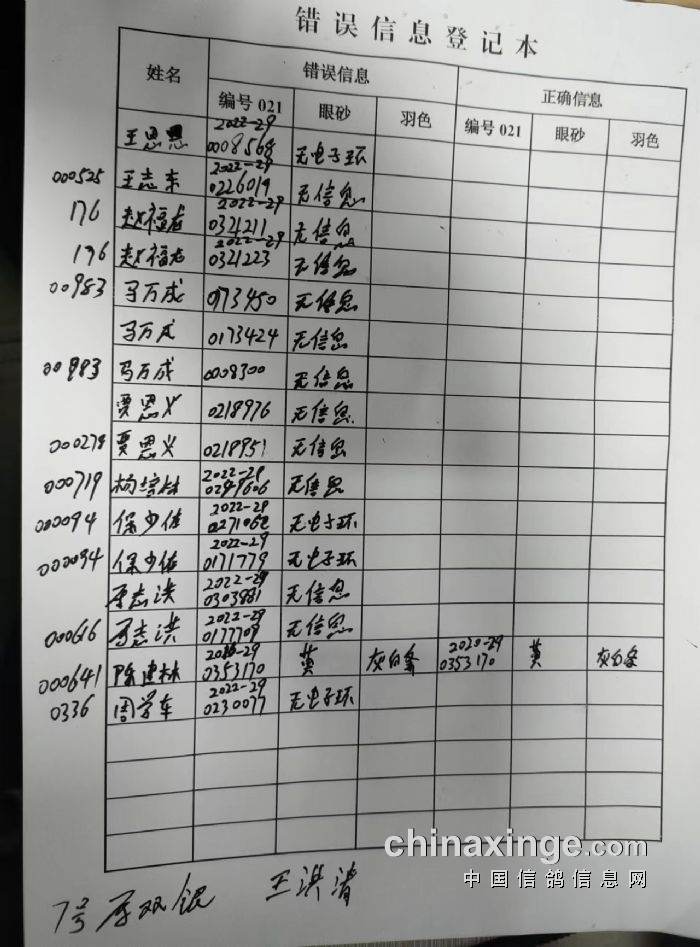 错误信息登记本
姓名 错误信息 正确信息
编号 021 眼砂 羽色 编号 021 眼砂 羽色
王恩惠 2022-29 0008568 无电子环
000525 王志东 2022-29 0226019 无信息
176 赵福龙 2022-29 0321211 无信息
176 赵福龙 2022-29 0321223 无信息
00983 马万成 0173450 无信息
马万成 0173424 无信息
00983 马万成 0008300 无信息
贾恩义 0218976 无信息
000278 贾恩义 0218951 无信息
000719 杨培林 2022-29 无信息
000094 保少佐 2022-29 0271062 无电子环
000094 保少佐 2022-29 0171779 无电子环
志洪 2022-29 0303981 无信息
000616 志洪 2022-29 0177709 无信息
000641 陈建林 0353170 黄 灰白条 2020-29 0353170 黄 灰白条
0336 周学车 2022-29 0230077 无电子环
7号 双银 王洪清
chinaxinge.com
中国信鸽信息网